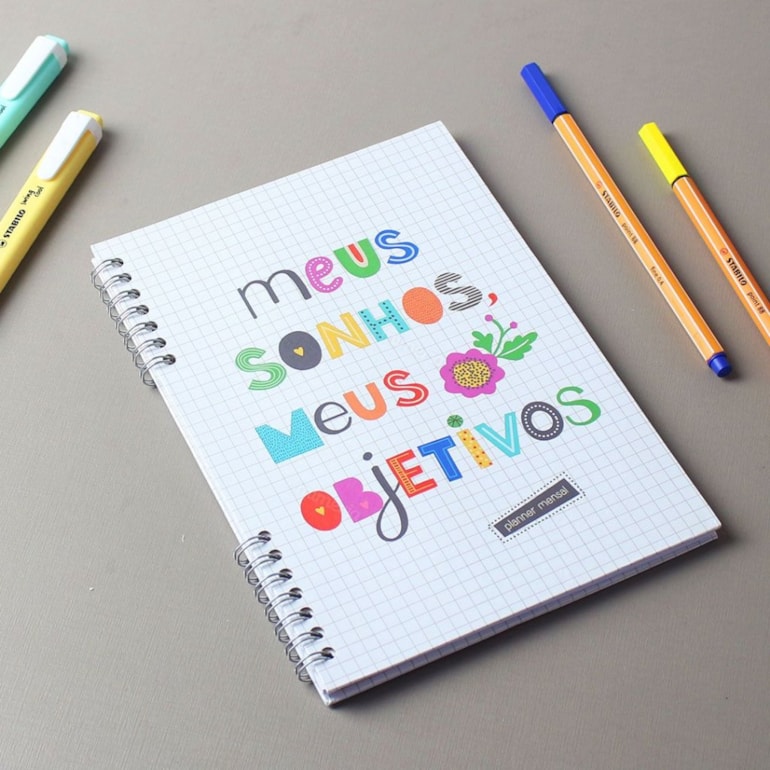 meus
SONHOS,
Meus
OBjETIVOS
planner mensal
STABILO swing cool
STABILO point 88 fine 0,4
STABILO point 88